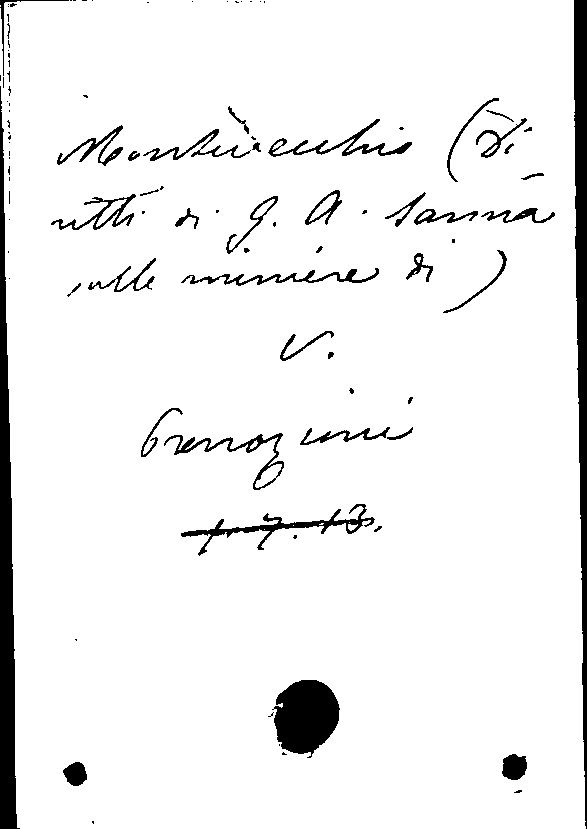 Montevecchio (Di
ritti di G. A. Sanna
sulle miniere di)
V.
1.7.13.